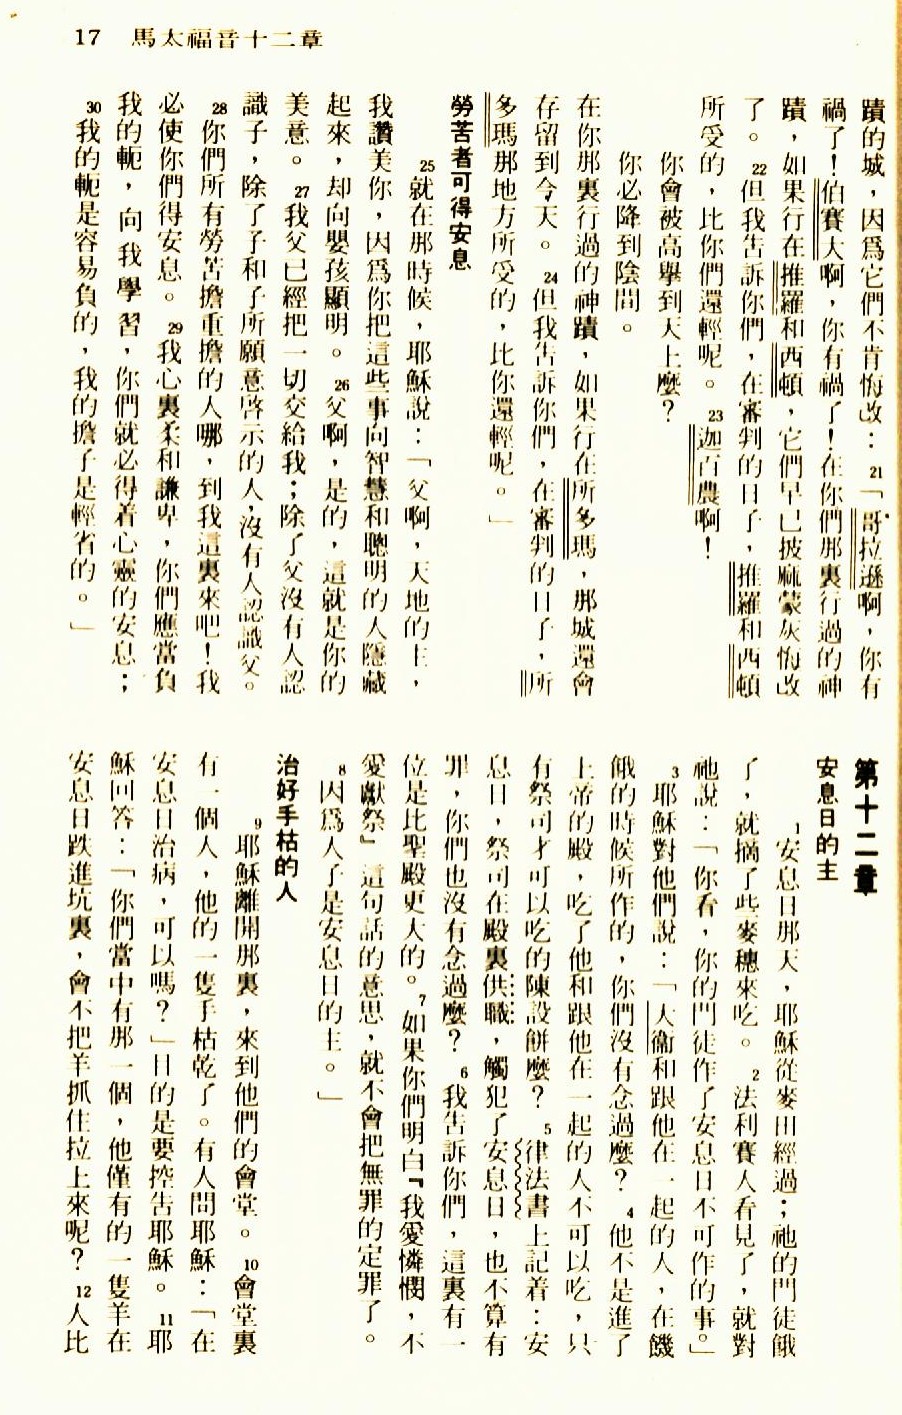 17 馬太福音十二章
蹟的城，因爲它們不肯悔改：21「哥拉遜啊，你有
禍了！伯賽大啊，你有禍了！在你們那裏行過的神
蹟，如果行在推羅和西頓，它們早已披麻蒙灰悔改
了。22但我告訴你們，在審判的日子，推羅和西頓
所受的，比你們還輕呢。23迦百農啊！
你會被高舉到天上麼？
你必降到陰間。
在你那裏行過的神蹟，如果行在所多瑪，那城還會
存留到今天。24但我告訴你們，在審判的日子，所
多瑪那地方所受的，比你還輕呢。」
勞苦者可得安息
25就在那時候，耶穌說：「父啊，天地的主，
我讚美你，因爲你把這些事向智慧和聰明的人隱藏
起來，却向嬰孩顯明。26父啊，是的，這就是你的
美意。27我父已經把一切交給我；除了父沒有人認
識子，除了子和子所願意啓示的人，沒有人認識父。
28你們所有勞苦擔重擔的人哪，到我這裏來吧！我
必使你們得安息。29我心裏柔和謙卑，你們應當負
我的軛，向我學習，你們就必得着心靈的安息；
30我的軛是容易負的，我的擔子是輕省的。」
第十二章
安息日的主
1安息日那天，耶穌從麥田經過；祂的門徒餓
了，就摘了些麥穗來吃。2法利賽人看見了，就對
祂說：「你看，你的門徒作了安息日不可作的事。」
3耶穌對他們說：「大衞和跟他在一起的人，在饑
餓的時候所作的，你們沒有念過麼？4他不是進了
上帝的殿，吃了他和跟他在一起的人不可以吃，只
有祭司才可以吃的陳設餅麼？5律法書上記着：安
息日，祭司在殿裏供職，觸犯了安息日，也不算有
罪，你們也沒有念過麼？6我告訴你們，這裏有一
位是比聖殿更大的。7如果你們明白『我愛憐憫，不
愛獻祭』這句話的意思，就不會把無罪的定罪了。
8因爲人子是安息日的主。」
治好手枯的人
9耶穌離開那裏，來到他們的會堂。10會堂裏
有一個人，他的一隻手枯乾了。有人問耶穌：「在
安息日治病，可以嗎？」目的是要控告耶穌。11耶
穌回答：「你們當中有那一個，他僅有的一隻羊在
安息日跌進坑裏，會不把羊抓住拉上來呢？12人比